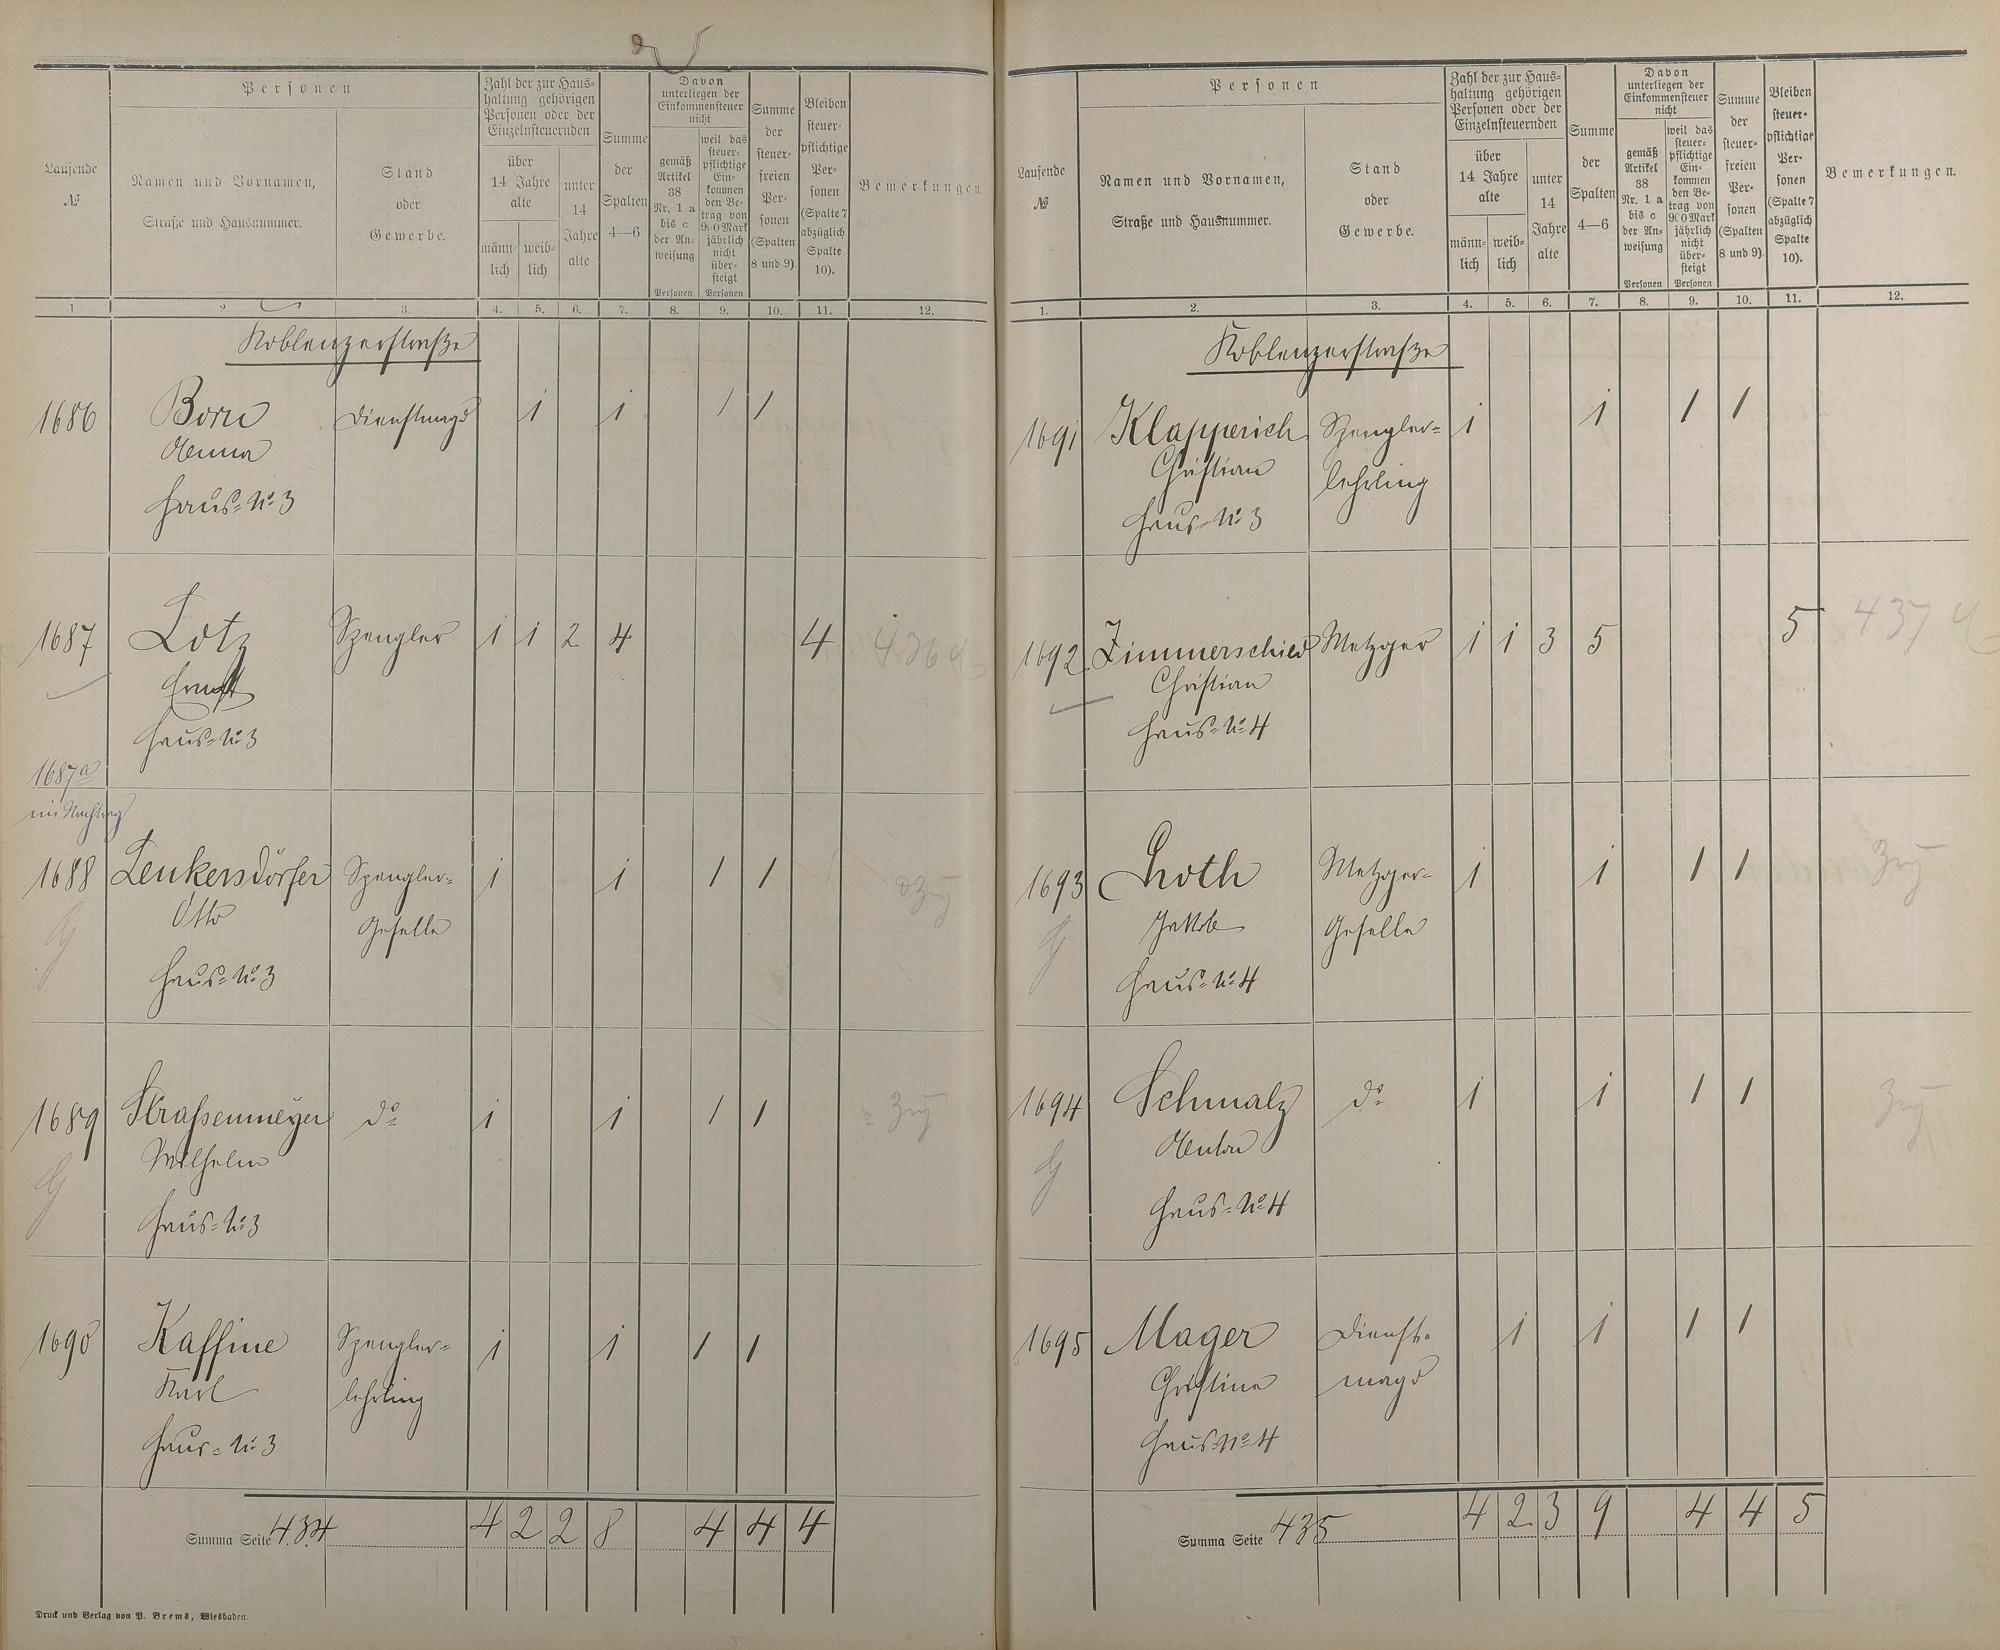 Laufende
№
Personen
Namen und Vornamen,
Straße und Hausnummer.
Stand
oder
Gewerbe.
Zahl der zur Haus-
haltung gehörigen
Personen oder der
Einzelnsteuernden
über
14 Jahre
alte
männ-
lich
weib-
lich
unter
14
Jahre
alte
Summe
der
Spalten
4—6
Davon
unterliegen der
Einkommensteuer
nicht
gemäß
Artikel
38
Nr. 1 a
bis c
der An-
weisung
Personen
weil das
steuer-
pflichtige
Ein-
kommen
den Be-
trag von
900 Mark
jährlich
nicht
über-
steigt
Personen
Summe
der
steuer-
freien
Per-
sonen
(Spalten
8 und 9).
Bleiben
steuer-
pflichtige
Per-
sonen
(Spalte 7
abzüglich
Spalte
10).
Bemerkungen.
1 2 3. 4. 5. 6. 7. 8. 9. 10. 11. 12.
Koblenzerstraße
1686 Born Dienstmagd 1 1 1 1
Anna
Haus=No 3
1687 Lotz Spengler 1 1 2 4 4 436
Ernst
Haus=No 3
1687a
im Nachtrag
1688 Leukersdörfer Spengler= 1 1 1 1 Zug
Otto Geselle
Haus=No 3
1689 Straßenmeyer do 1 1 1 1 Zug
Wilhelm
Haus=No 3
1690 Kaffine Spengler= 1 1 1 1
Karl lehrling
Haus=No 3
Summa Seite 434 4 2 2 8 4 4 4
Druck und Verlag von P. Brems, Wiesbaden.
Laufende
№
Personen
Namen und Vornamen,
Straße und Hausnummer.
Stand
oder
Gewerbe.
Zahl der zur Haus-
haltung gehörigen
Personen oder der
Einzelnsteuernden
über
14 Jahre
alte
männ-
lich
weib-
lich
unter
14
Jahre
alte
Summe
der
Spalten
4—6
Davon
unterliegen der
Einkommensteuer
nicht
gemäß
Artikel
38
Nr. 1 a
bis c
der An-
weisung
Personen
weil das
steuer-
pflichtige
Ein-
kommen
den Be-
trag von
900 Mark
jährlich
nicht
über-
steigt
Personen
Summe
der
steuer-
freien
Per-
sonen
(Spalten
8 und 9).
Bleiben
steuer-
pflichtige
Per-
sonen
(Spalte 7
abzüglich
Spalte
10).
Bemerkungen.
1. 2. 3. 4. 5. 6. 7. 8. 9. 10. 11. 12.
Koblenzerstraße
1691 Klapperich Spengler= 1 1 1 1
Christian lehrling
Haus=No 3
1692 Zimmerschied Metzger 1 1 3 5 5 437
Christian
Haus=No 4
1693 Groth Metzger= 1 1 1 1 Zug
Jakob Geselle
Haus=No 4
1694 Schmalz do 1 1 1 1 Zug
Anton
Haus=No 4
1695 Mager Dienst= 1 1 1 1
Christine magd
Haus=No 4
Summa Seite 435 4 2 3 9 4 4 5